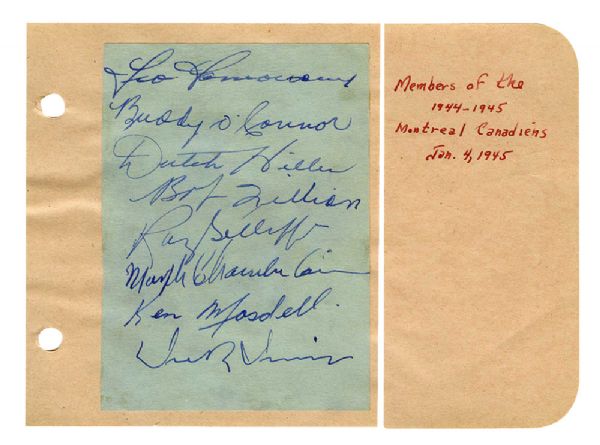 Leo Lamoureux
Buddy O'Connor
Dutch Hiller
Bob Fillion
Ray Getliffe
Murph Chamberlain
Ken Mosdell.
Dick Irvin
Members of the
1944-1945
Montreal Canadiens
Jan. 4, 1945